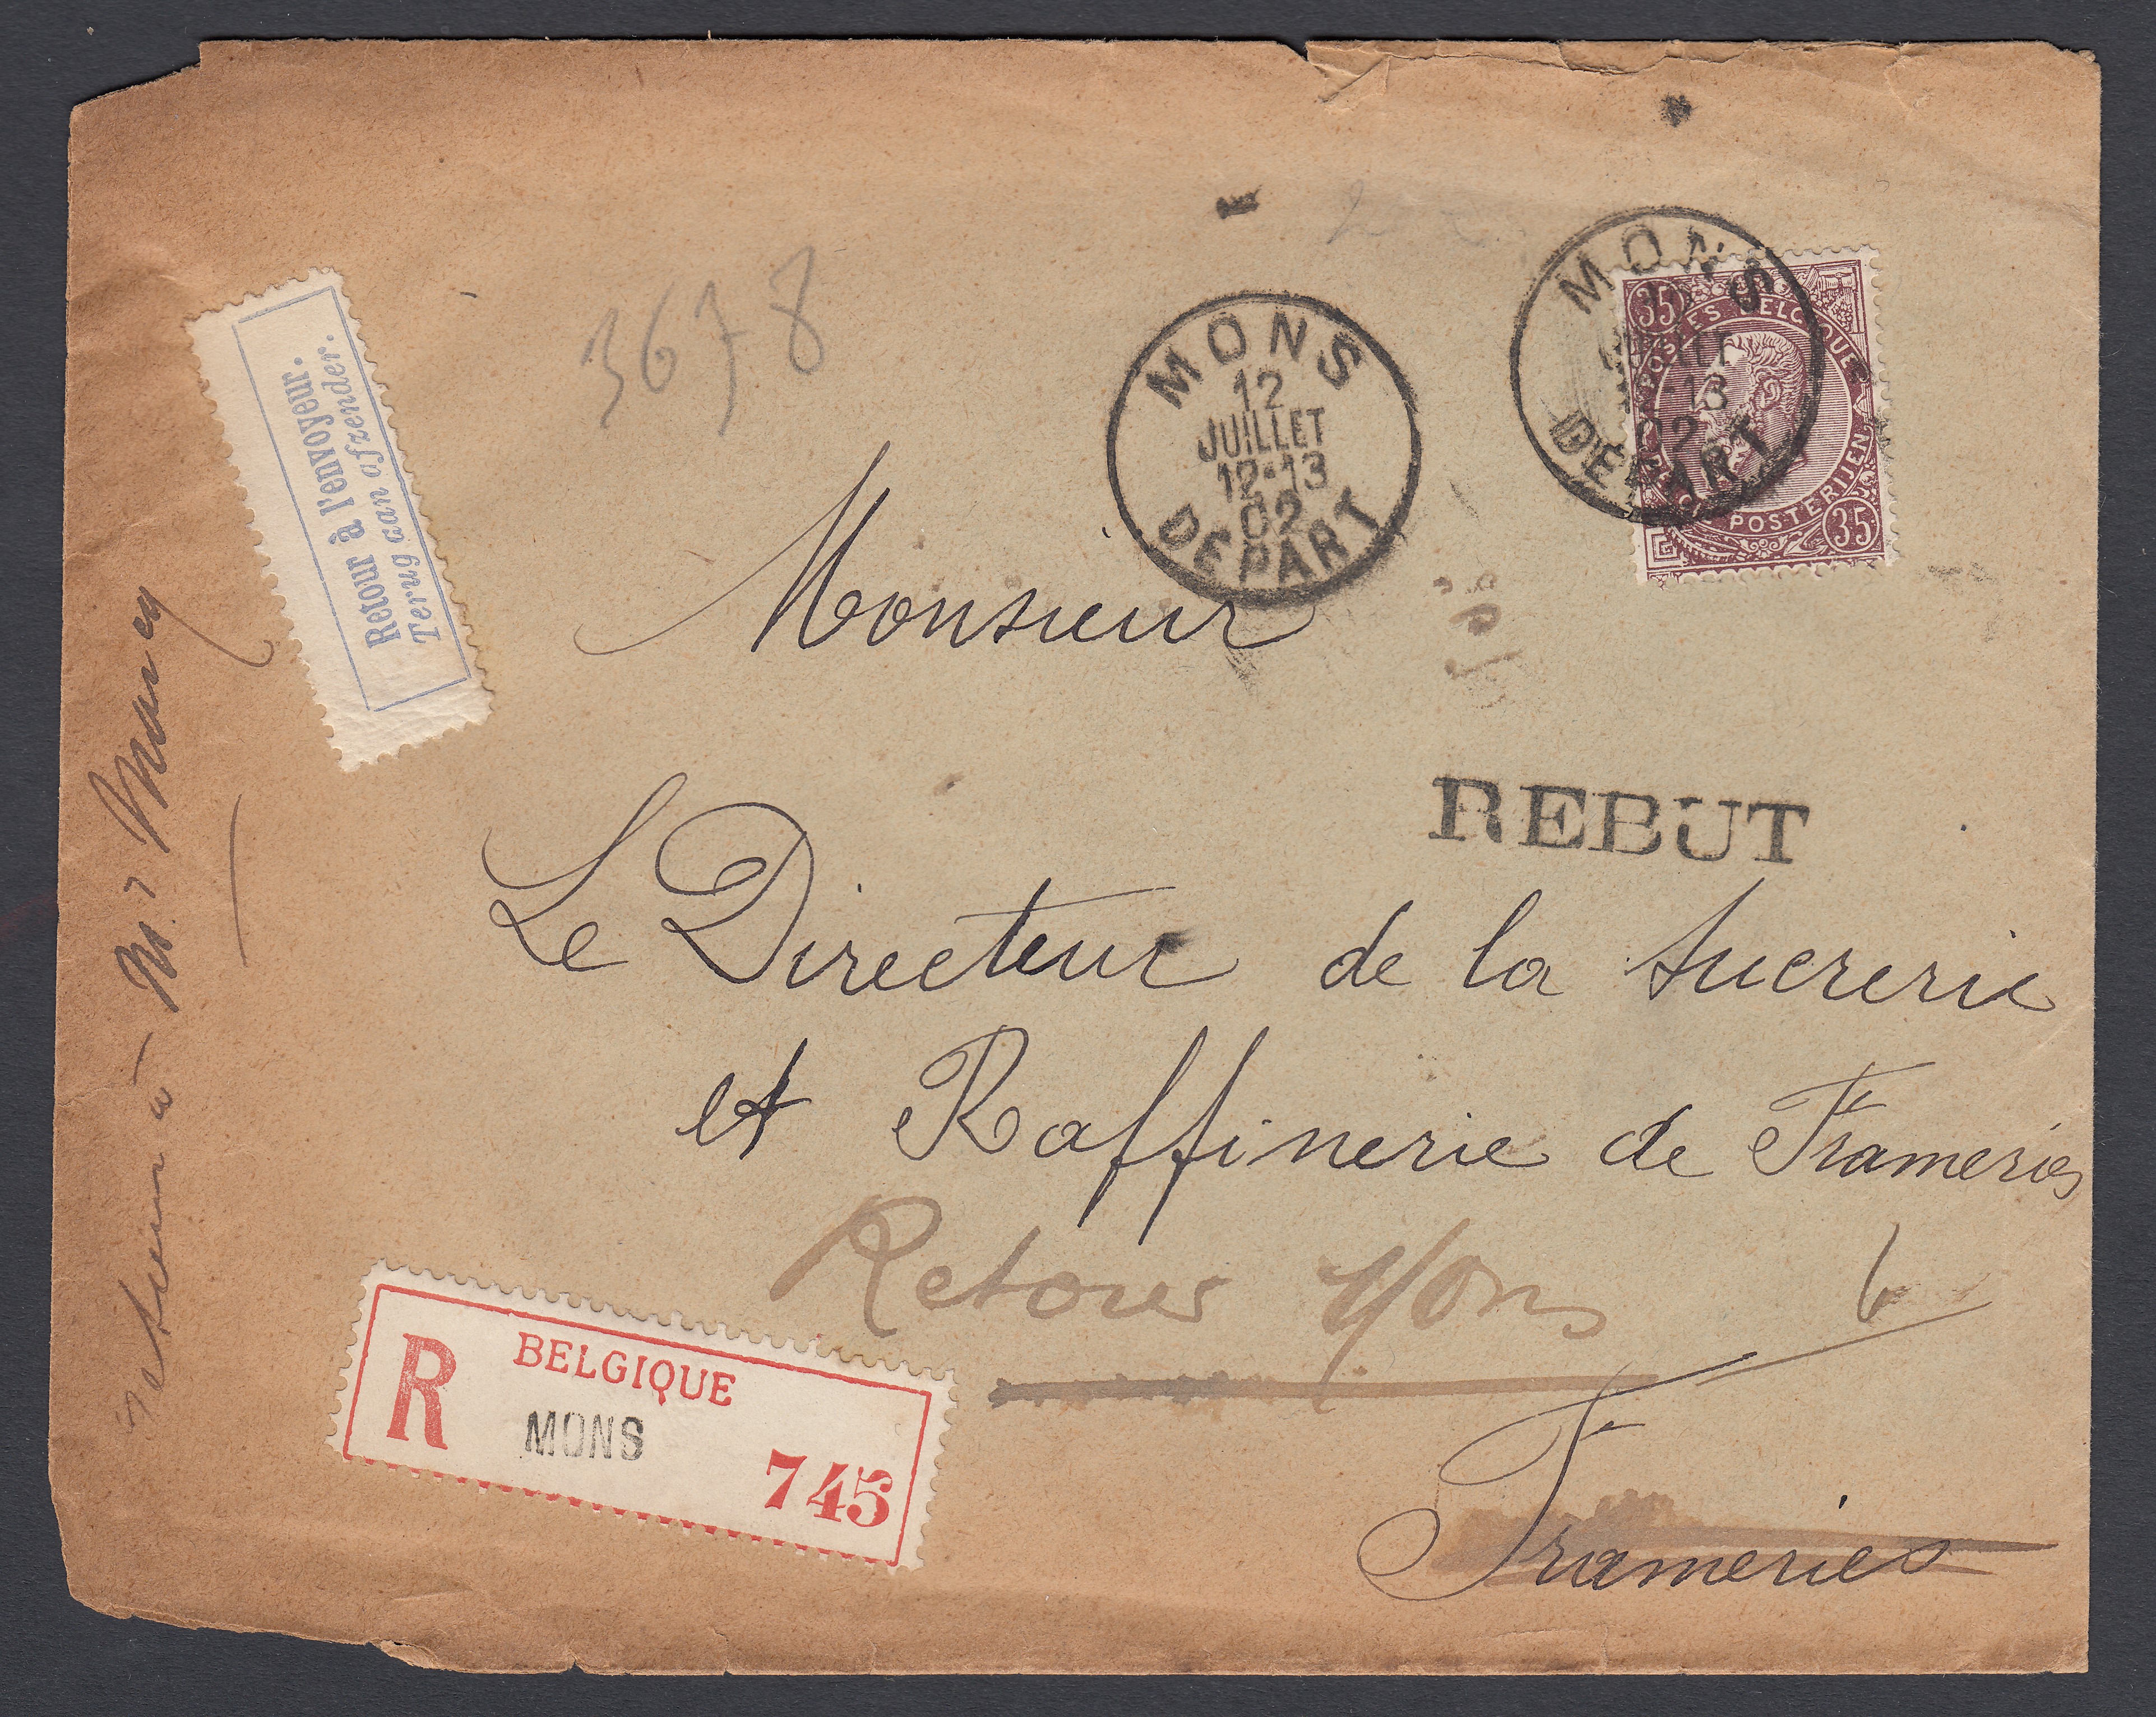 3678
MONS
12
JUILLET
12-13
02
DEPART
MONS
12
JUILLET
12-13
02
DEPART
35
POSTES BELGIQUE
POSTERIJEN
35
Retour à l'envoyeur.
Terug aan afzender.
Monsieur
REBUT
Le Directeur de la Sucrerie
et Raffinerie de Frameries
Retour Mons
Frameries
R
BELGIQUE
MONS
745
retour à Mr